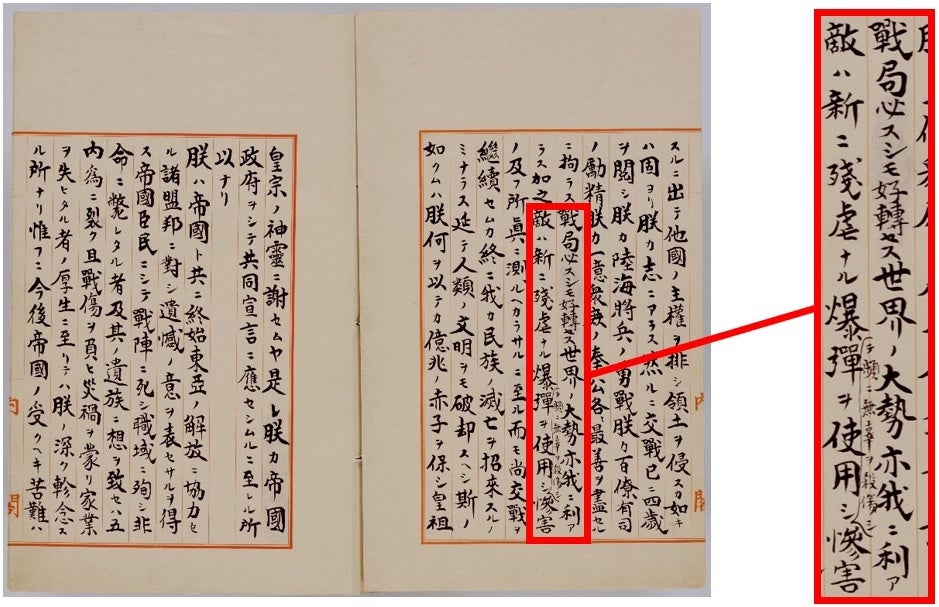 スルニ出テ他國ノ主權ヲ排シ領土ヲ侵スカ如キ
ハ固ヨリ朕カ志ニアラス然ルニ交戰已ニ四歳
ヲ閲シ朕カ陸海將兵ノ勇戰朕カ百僚有司
ノ勵精朕カ一億衆庶ノ奉公各〻最善ヲ盡セル
ニ拘ラス戰局必スシモ好轉セス世界ノ大勢亦我ニ利ア
ラス加之敵ハ新ニ殘虐ナル爆彈ヲ使用シ慘害
テ頻ニ無辜ヲ殺傷シ
ノ及フ所眞ニ測ルヘカラサルニ至ル而モ尚交戰ヲ
繼續セムカ終ニ我カ民族ノ滅亡ヲ招來スルノ
ミナラス延テ人類ノ文明ヲモ破却スヘシ斯ノ
如クムハ朕何ヲ以テカ億兆ノ赤子ヲ保シ皇祖
内閣
皇宗ノ神靈ニ謝セムヤ是レ朕カ帝國
政府ヲシテ共同宣言ニ應セシムルニ至レル所
以ナリ
朕ハ帝國ト共ニ終始東亞ノ解放ニ協力セ
ル諸盟邦ニ對シ遺憾ノ意ヲ表セサルヲ得
ス帝國臣民ニシテ戰陣ニ死シ職域ニ殉シ非
命ニ斃レタル者及其ノ遺族ニ想ヲ致セハ五
内爲ニ裂ク且戰傷ヲ負ヒ災禍ヲ蒙リ家業
ヲ失ヒタル者ノ厚生ニ至リテハ朕ノ深ク軫念ス
ル所ナリ惟フニ今後帝國ノ受クヘキ苦難ハ
内閣
戰局必スシモ好轉セス世界ノ大勢亦我ニ利ア
敵ハ新ニ殘虐ナル爆彈ヲ使用シ慘害
テ頻ニ無辜ヲ殺傷シ